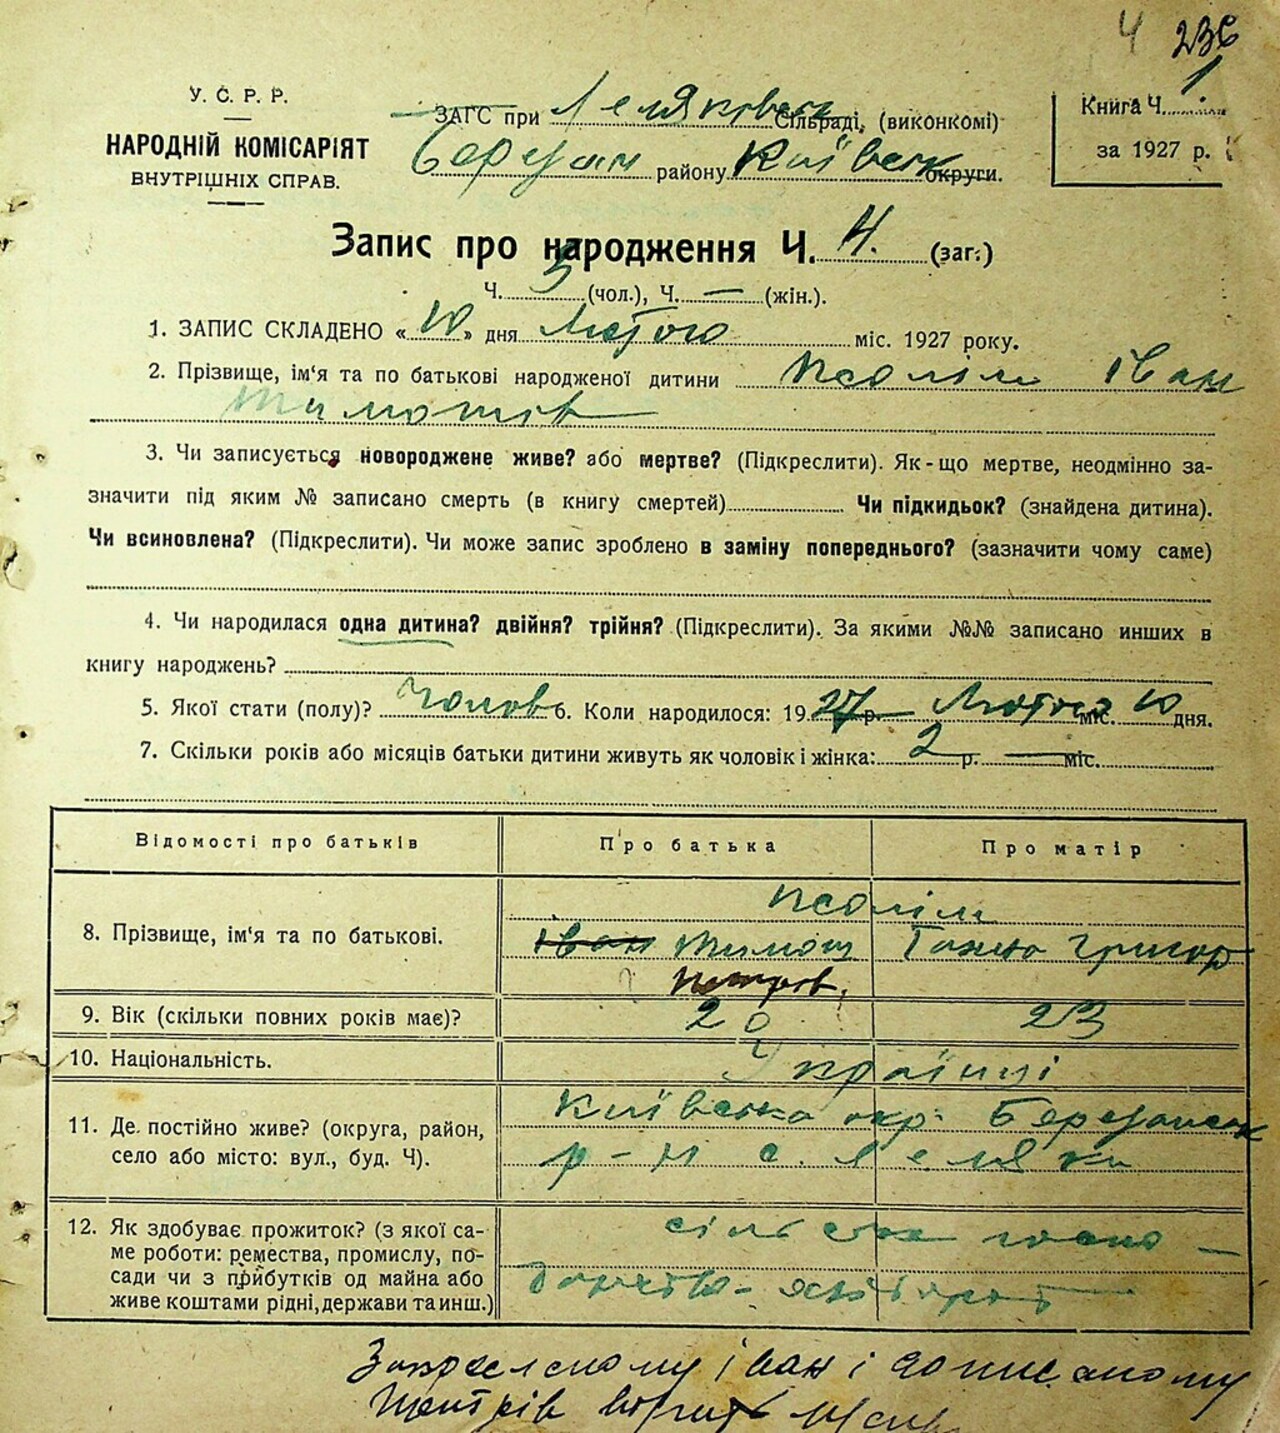 4 236
У. С. Р. Р.
НАРОДНІЙ КОМІСАРІЯТ
ВНУТРІШНІХ СПРАВ.
ЗАГС при Леляківськ Сільраді, (виконкомі)
Березан району Київськ округи.
Книга Ч. 1
за 1927 р.
Запис про народження Ч. 4. (заг.)
Ч. 3 (чол.), Ч. — (жін.).
1. ЗАПИС СКЛАДЕНО « 10 » дня Лютого міс. 1927 року.
2. Прізвище, ім'я та по батькові народженої дитини Псолім Іван
Тимошів
3. Чи записується новороджене живе? або мертве? (Підкреслити). Як-що мертве, неодмінно за-
значити під яким № записано смерть (в книгу смертей) Чи підкидьок? (знайдена дитина).
Чи всиновлена? (Підкреслити). Чи може запис зроблено в заміну попереднього? (зазначити чому саме)
4. Чи народилася одна дитина? двійня? трійня? (Підкреслити). За якими №№ записано инших в
книгу народжень?
5. Якої стати (полу)? Чолов 6. Коли народилося: 1927 р. Лютого міс. 10 дня.
7. Скільки років або місяців батьки дитини живуть як чоловік і жінка: 2 р. — міс.
Відомості про батьків Про батька Про матір
8. Прізвище, ім'я та по батькові. Псолім
Іван Тимош Ганна Григор
Петрів.
9. Вік (скільки повних років має)? 20 23
10. Національність. Українці
11. Де постійно живе? (округа, район,
село або місто: вул., буд. Ч). Київська окр. Березанськ
р-н с. Леляки
12. Як здобуває прожиток? (з якої са-
ме роботи: ремества, промислу, по-
сади чи з прибутків од майна або
живе коштами рідні, держави та инш.) сільськ госпо-
дарства-хліборот
Закресленому Іван і дописаному
Петрів вірить